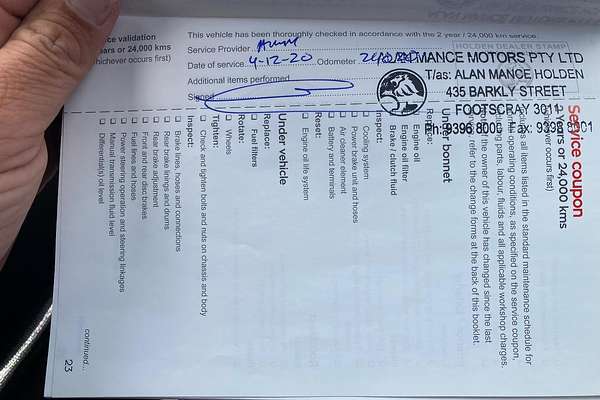 ce validation
ars or 24,000 kms
hichever occurs first)
This vehicle has been thoroughly checked in accordance with the 2 year / 24,000 km service.
Service Provider
Date of service 4-12-20 Odometer
Additional items performed
Signed
HOLDEN DEALER STAMP
MANCE MOTORS PTY LTD
T/as: ALAN MANCE HOLDEN
435 BARKLY STREET
FOOTSCRAY 3011
9396 800
Service coupon
ars or 24,000 kms
hever occurs first)
s all items listed in the standard maintenance schedule for
al operating conditions, as specified on the service coupon,
ing parts, labour, fluids and all applicable workshop charges.
the owner of this vehicle has changed since the last
refer to the change forms at the back of this booklet.
Under bonnet
Engine oil
Engine oil filter
Brake / clutch fluid
Inspect:
Cooling system
Power brake unit and hoses
Air cleaner element
Battery and terminals
Reset:
Engine oil life system
Under vehicle
Replace:
Fuel filters
Rotate:
Wheels
Tighten:
Check and tighten bolts and nuts on chassis and body
Inspect:
Brake lines, hoses and connections
Rear brake linings and drums
Rear brake adjustment
Front and rear disc brakes
Fuel lines and hoses
Power steering operation and steering linkages
Manual transmission fluid level
Differential(s) oil level
continued...
23